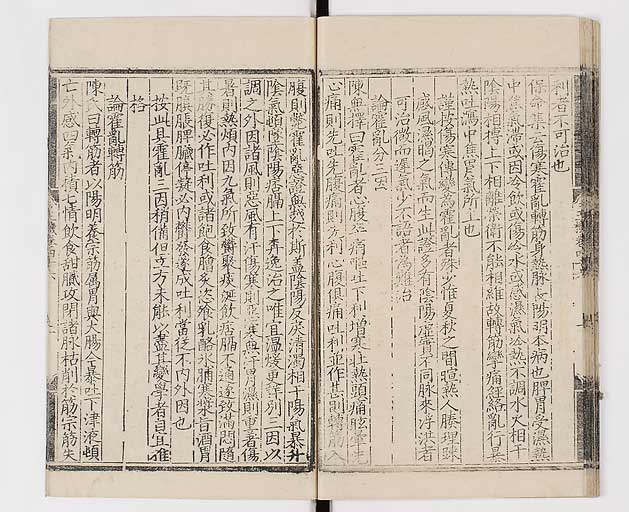 利者不可治也
保命集云傷寒霍亂轉筋身熱脉 陽明本病也脾胃受濕熱
中焦氣滯或因冷飲或傷冷水或感濕氣冷熱不調水火相干
陰陽相搏上下相離榮衛不能相維故轉筋攣痛經絡亂行暴
熱吐瀉中焦胃氣所主也
謹按傷寒傳變為霍亂者殊少惟夏秋之間暄熱人腠理踈
感風濕暍之氣而生此證多有陰陽虛實不同脉來浮洪者
可治微而遲氣少不語者為難治
論霍亂分三因
陳無擇曰霍亂者心腹卒痛嘔吐下利增寒壯熱頭痛眩暈先
心痛則先吐先腹痛則先利心腹俱痛吐利並作甚則轉筋入
腹則斃霍亂惡證無越於斯蓋陰陽反戾清濁相干陽氣暴升
陰氣頓墜陰陽痞膈上下奔逸治之唯宜溫煖更詳別三因以
調之外因諸風則惡風有汗傷寒則惡寒無汗冒濕則重著傷
暑則熱煩內因九氣所致鬱聚痰涎飲痞膈不通遂致滿悶隨
其勝復必作吐利或諸飽食膾炙恣飡乳酪冰脯寒漿旨酒胃
既䐜脹脾臟停凝必內鬱發遂成吐利當從不內外因也
按此具霍亂三因稍備但立方未能以盡其變學者自宜推
格
論霍亂轉筋
陳氏曰轉筋者以陽明養宗筋屬胃與大腸今暴吐下津液頓
亡外感四氣內積七情飲食甜膩攻閉諸脉枯削於筋宗筋失